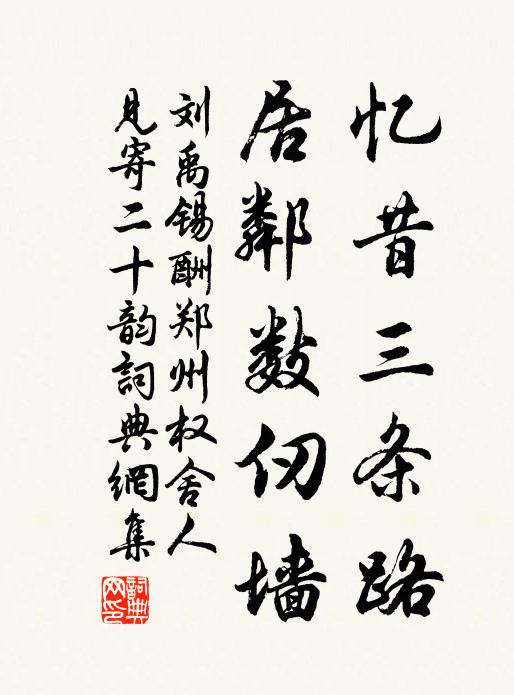 忆昔三条路
居鄰数仞墙
刘禹锡酬郑州权舍人
見寄二十韵詞典網集
詞典網印